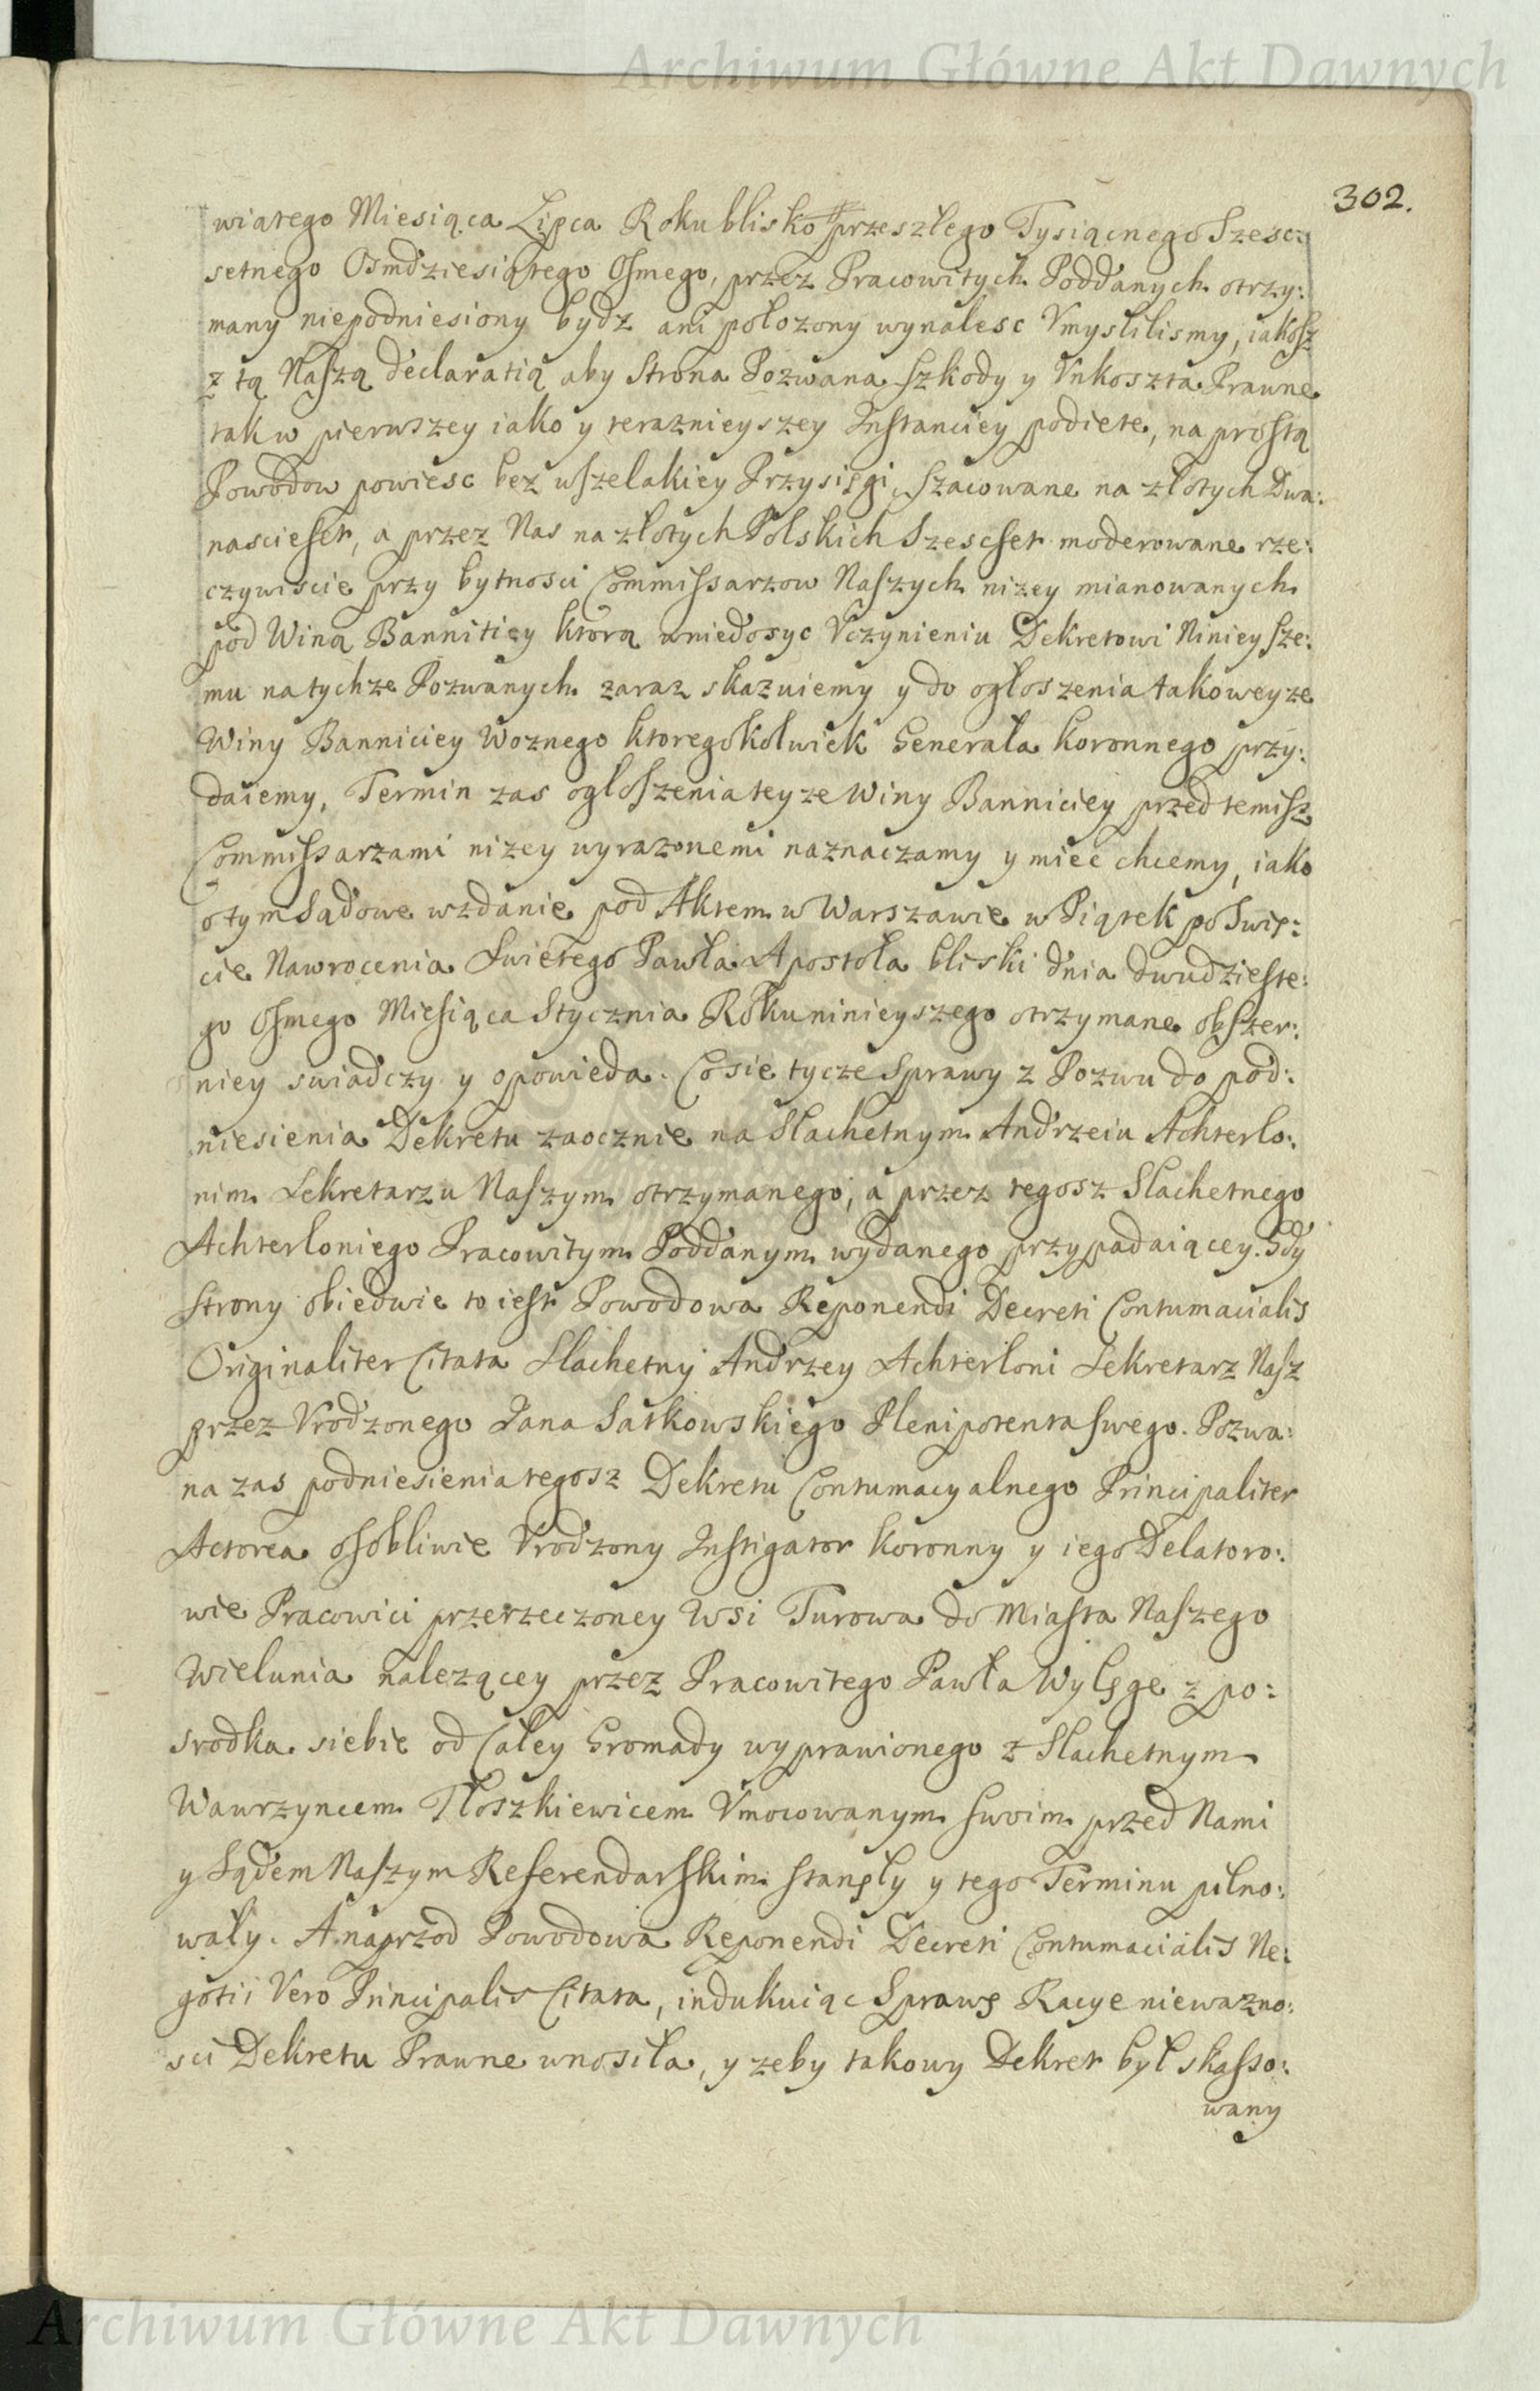 Archiwum Główne Akt Dawnych
302.
wiątego Miesiąca Lipca Roku blisko przeszłego Tysiącnego Szesc:
setnego Osmdziesiątego Osmego, przez Pracowitych Poddanych otrzy:
many niepodniesiony bydz ani położony wynalesc Vmyslilismy, iakosz
z tą Naszą declaratią aby Strona Pozwana szkody y Vnkoszta Prawne
tak w pierwszey iako y teraznieyszey Instanciey podięte, na prostą
Powodow powiesc bez wszelakiey Przysięgi, szacowane na złotych Dwa:
nascieset, a przez Nas na złotych Polskich Szescset moderowane rze:
czywiscie przy bytnosci Commissarzow Naszych nizey mianowanych
pod Winą Bannitiey ktorą wniedosyc Vczynieniu Dekretowi Ninieysze:
mu na tychze Pozwanych zaraz skazuiemy y do ogłoszenia takoweyze
Winy Banniciey Woznego ktoregokolwiek Generała Koronnego przy:
daiemy, Termin zas ogłoszenia teyze Winy Banniciey przed temisz
Commissarzami nizey wyrazonemi naznaczamy y miec chcemy, iako
o tym Sądowe wzdanie pod Aktem w Warszawie w Piątek po Swię:
cie Nawrocenia Swietego Pawła Apostoła bliski dnia dwudzieste:
go Osmego Miesiąca Stycznia Roku ninieyszego otrzymane obszer:
niey swiadczy y opowieda. Co sie tycze Sprawy z Pozwu do pod:
niesienia Dekretu zaocznie na Slachetnym Andrzeiu Achterlo:
nim Sekretarzu Naszym otrzymanego, a przez tegosz Slachetnego
Achterloniego Pracowitym Poddanym wydanego przypadaiącey. Gdy
Strony obiedwie to iest Powodowa Reponendi Decreti Contumacialis
Originaliter Citata Slachetny Andrzey Achterloni Sekretarz Nasz
przez Vrodzonego Jana Satkowskiego Plenipotenta swego. Pozwa:
na zas podniesienia tegosz Dekretu Contumacyalnego Principaliter
Actorea osobliwie Vrodzony Instigator Koronny y iego Delatoro:
wie Pracowici przerzeczoney Wsi Turowa do Miasta Naszego
Wielunia nalezącey przez Pracowitego Pawła Wylęge z po:
srodka siebie od Całey Gromady wyprawionego z Slachetnym
Wawrzyncem Tłoszkiewicem Vmocowanym swoim przed Nami
y Sądem Naszym Referendarskim stanęły y tego Terminu pilno:
wały. A naprzod Powodowa Reponendi Decreti Contumacialis Ne:
gotii Vero Principalis Citata, indukuiąc Sprawę Racye niewazno:
sci Dekretu Prawne wnosiła, y zeby takowy Dekret był skasso:
wany
Archiwum Główne Akt Dawnych